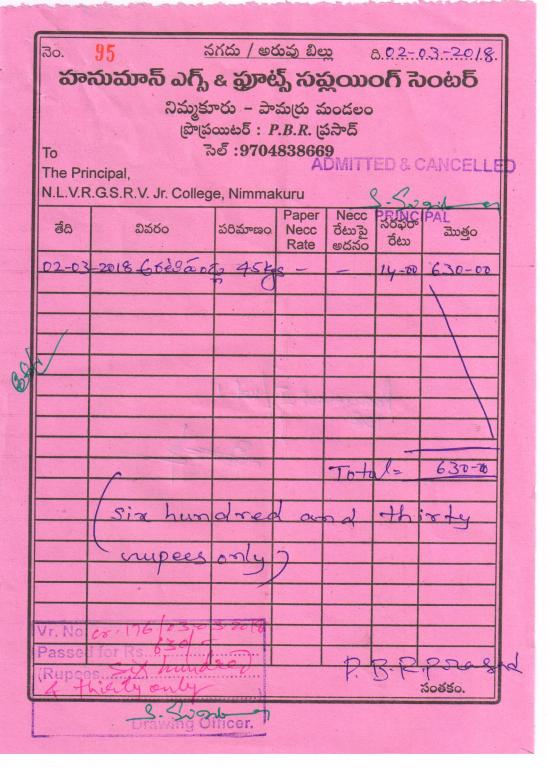 నెం. 95 నగదు / అరువు బిల్లు ది.02-03-2018
హనుమాన్ ఎగ్స్ & ఫ్రూట్స్ సప్లయింగ్ సెంటర్
నిమ్మకూరు - పామర్రు మండలం
ప్రొప్రయిటర్ : P.B.R. ప్రసాద్
సెల్ :9704838669
ADMITTED & CANCELLED
To
The Principal,
N.L.V.R.G.S.R.V. Jr. College, Nimmakuru
PRINCIPAL
తేది వివరం పరిమాణం Paper Necc Rate Necc రేటుపై అదనం సరఫరా రేటు మొత్తం
02-03-2018 అరటిపండ్లు 45kgs - - 14-00 630-00
Total= 630-00
(six hundred and thirty
rupees only)
Vr. No cr. 176/03-03-2018
Passed for Rs. 630/-
(Rupees six hundred
& thirty only
P. B. R. Prasad
సంతకం.
Drawing Officer.